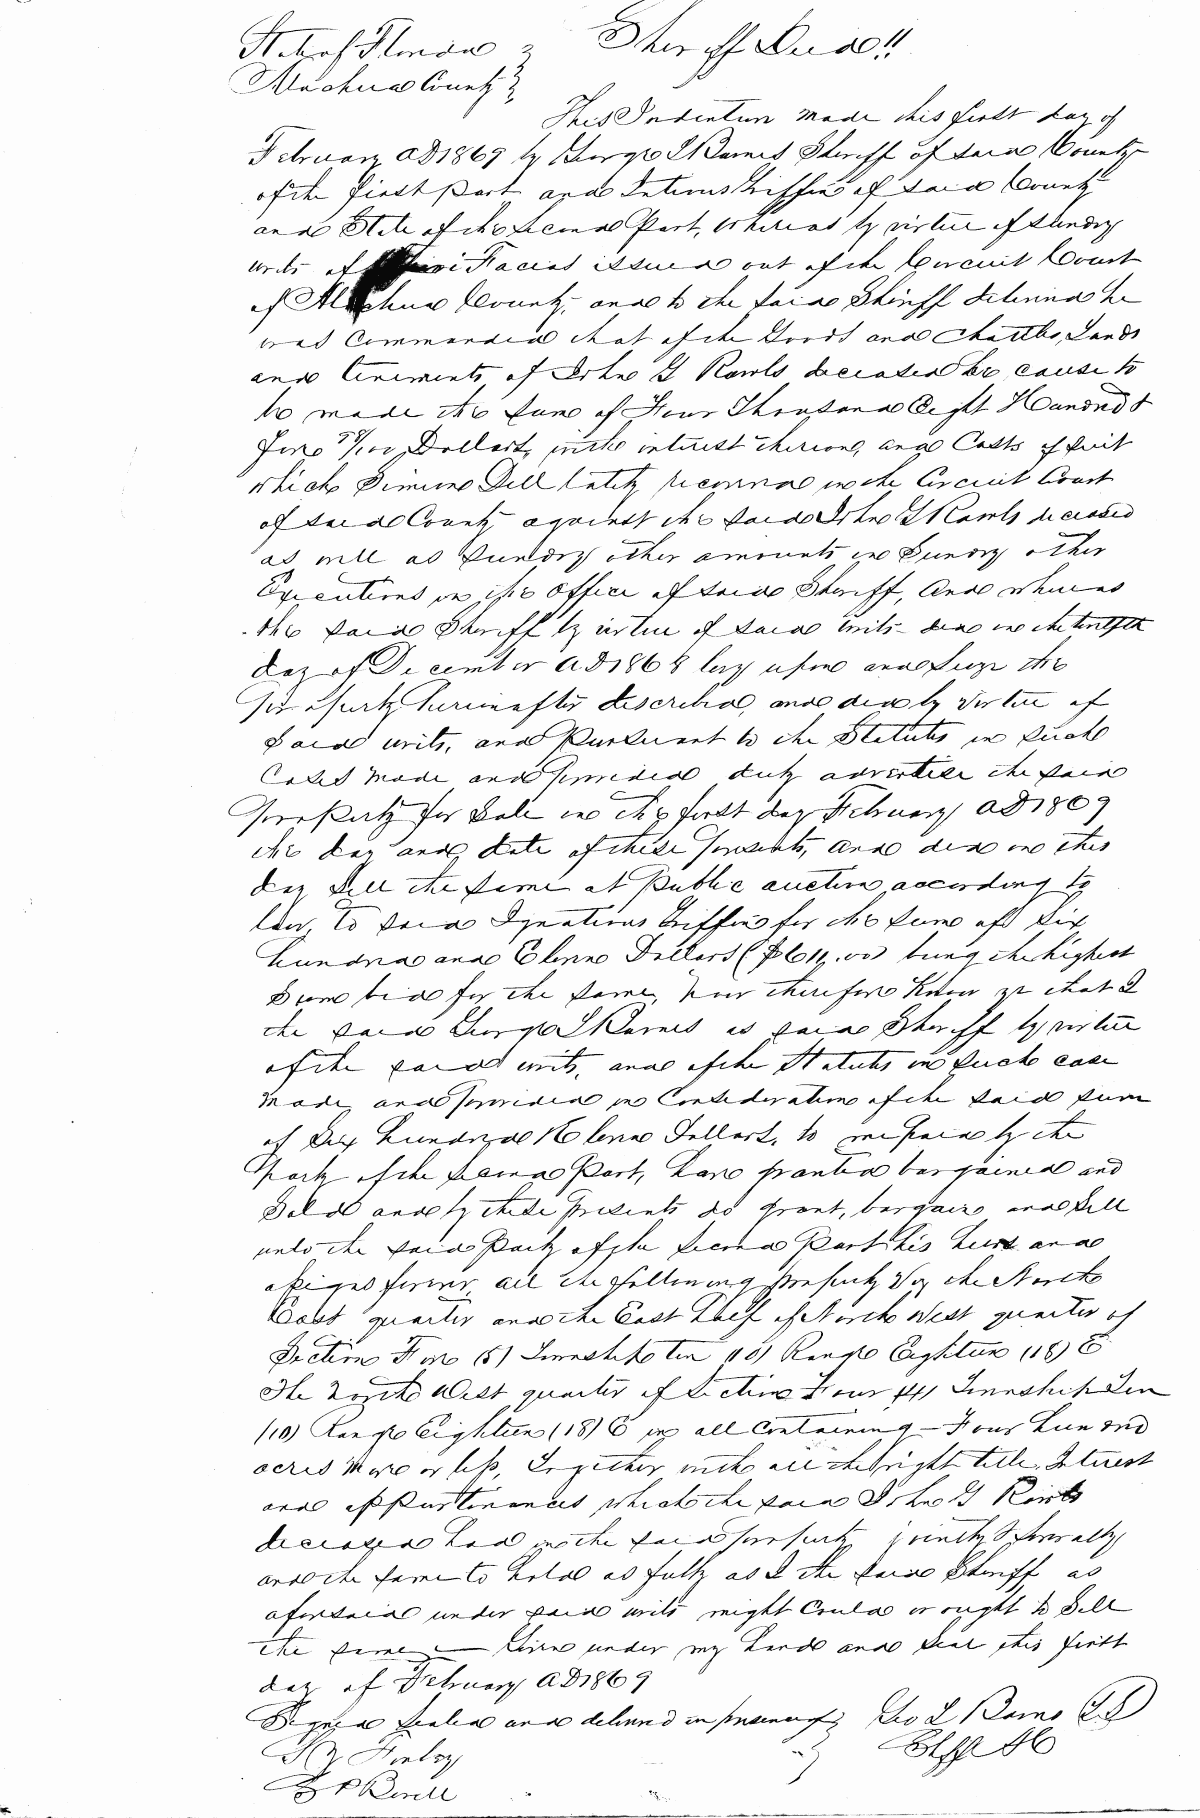 State of Florida } Sheriff Deed!!
Alachua County }
This Indenture made this first day of
February AD 1869 by George L Barnes Sheriff of said County
of the first Part and Griffin of said County
and State of the Second Part, Whereas by virtue of sundry
writs of Facias issued out of the Circuit Court
of Alachua County, and to the said Sheriff delivered he
was commanded that of the Goods and Chattles, Lands
and tenements of John G Rawls deceased he cause to
be made the sum of Four Thousand Eight Hundred &
five /100 Dollars, with interest thereon, and Costs of suit
which Simeon Dell lately recovered in the Circuit Court
of said County against the said John G Rawls deceased
as well as sundry other amounts in Sundry other
Executions in the office of said Sheriff, And whereas
the said Sheriff by virtue of said writs did on the twelfth
day of December AD 1868 levy upon and seize the
property hereinafter described, and did by virtue of
said writs, and Pursuant to the Statutes in such
Cases made and provided duly advertise the said
property for sale on the first day February AD 1869
the day and date of these presents, and did on this
day sell the same at Public auction according to
law, to said Ignatious Griffin for the sum of Six
hundred and Eleven Dollars ($611.00) being the highest
Sum bid for the same, Now therefore Know ye that I
the said George L Barnes as said Sheriff by virtue
of the said writs, and of the Statutes in such case
made and provided in Consideration of the said sum
of Six hundred & Eleven Dollars, to me paid by the
Party of the Second Part, have granted bargained and
Sold and by these Presents do grant, bargain and Sell
unto the said Party of the Second Part his heirs and
assigns forever, all the following property Viz the North
East quarter and the East half of North West quarter of
Section Five (5) Township ten (10) Range Eighteen (18) E
The North West quarter of Section Four (4) Township Ten
(10) Range Eighteen (18) E in all containing – Four hundred
acres more or less, Together with all the right title, Interest
and appurtenances which the said John G Rawls
deceased had in the said property jointly & severally
and the same to hold as fully as I the said Sheriff as
aforesaid under said writs might Could or ought to Sell
the same — Given under my hand and seal this first
day of February AD 1869
Signed sealed and delivered in presence of } Geo L Barnes LS
Finley } Shff AC
Bevill